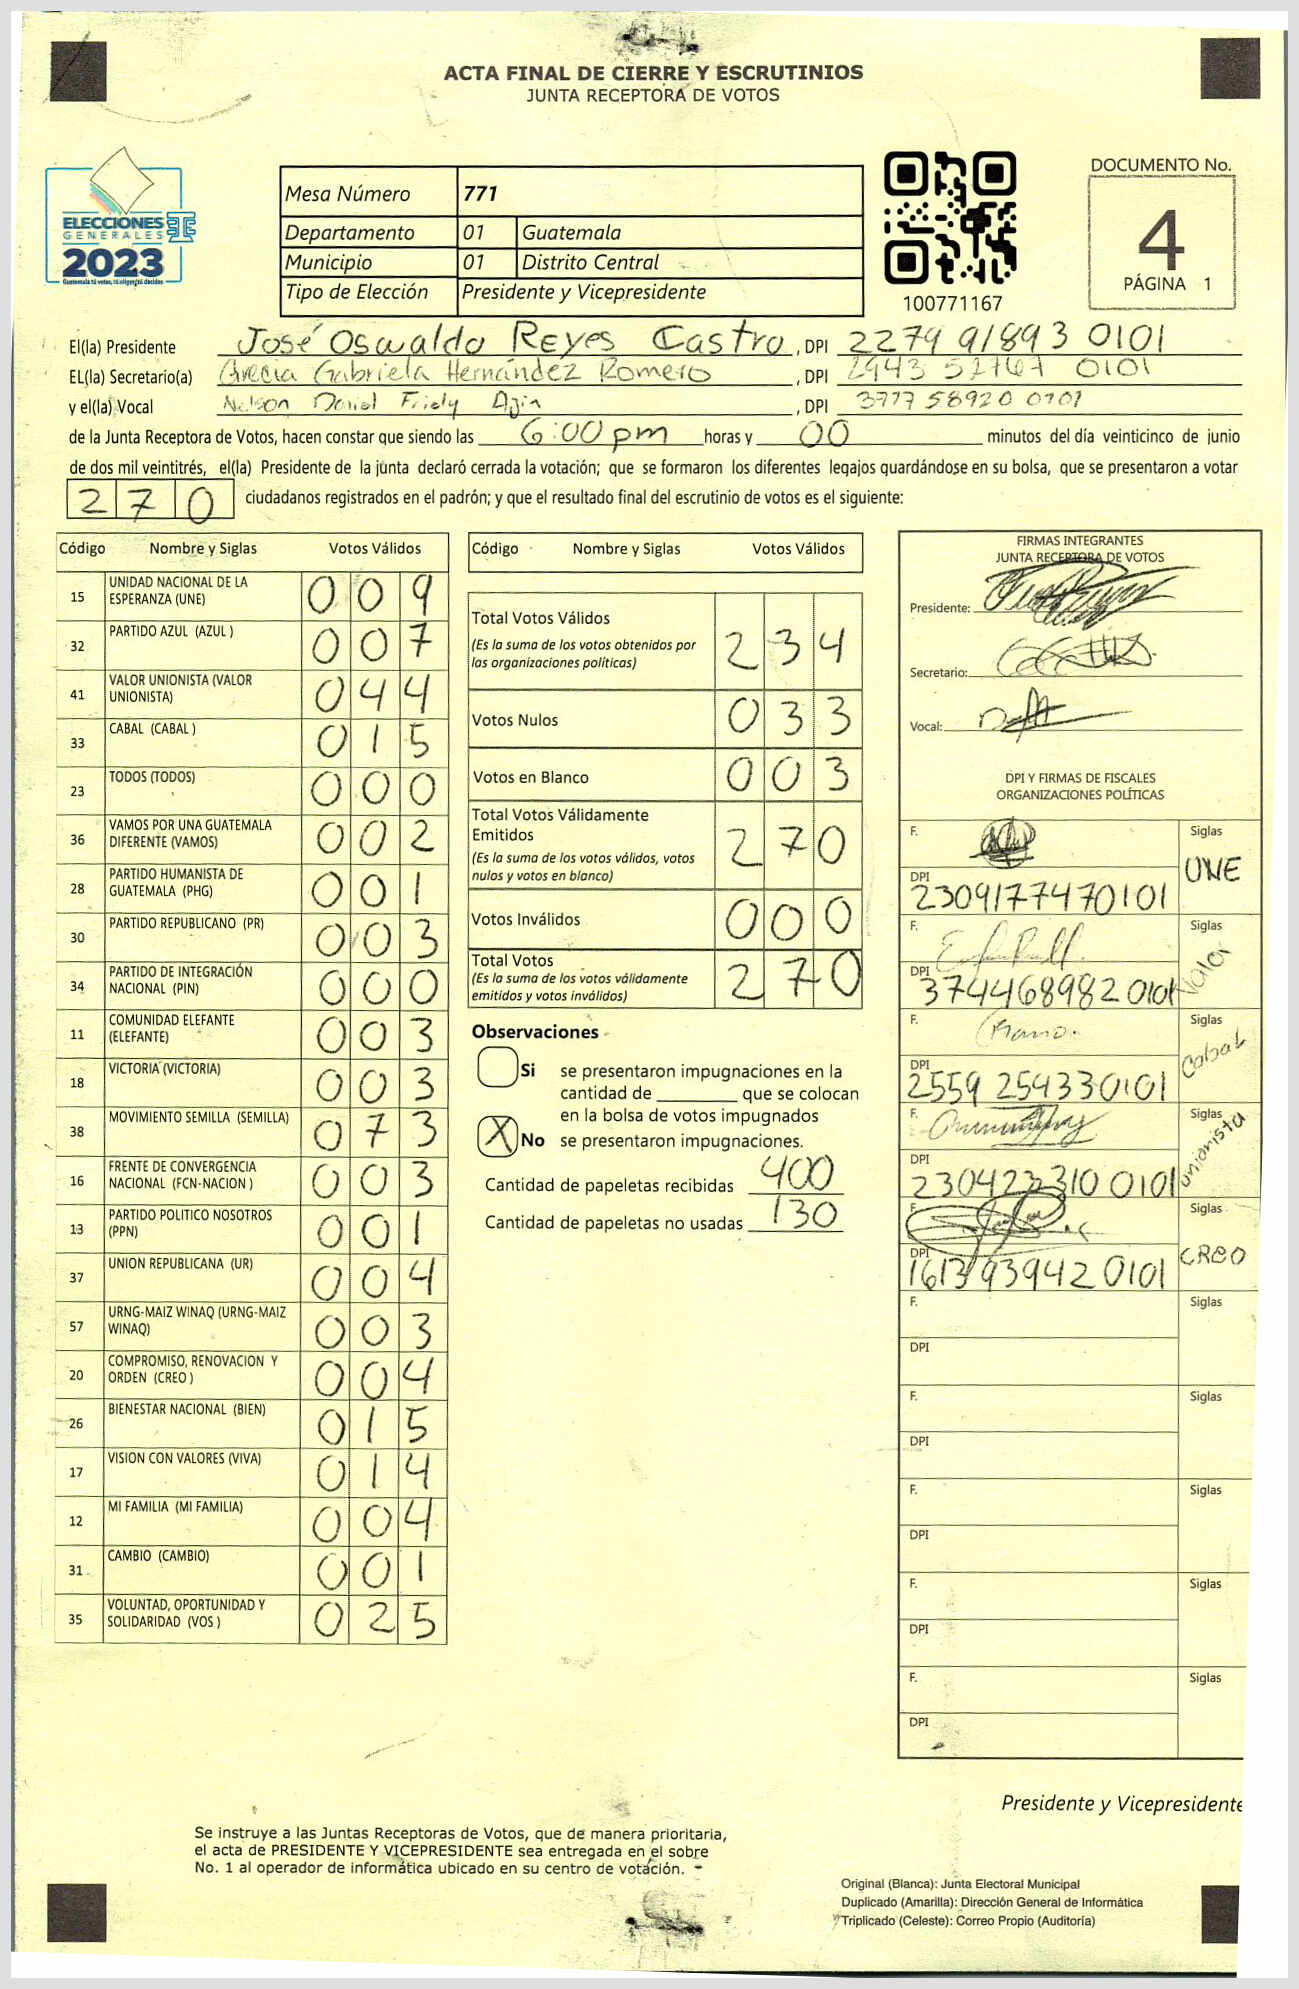 ACTA FINAL DE CIERRE Y ESCRUTINIOS
JUNTA RECEPTORA DE VOTOS
ELECCIONES
GENERALES
2023
Guatemala tú votas, tú eliges, tú decides
Mesa Número 771
Departamento 01 Guatemala
Municipio 01 Distrito Central
Tipo de Elección Presidente y Vicepresidente
100771167
DOCUMENTO No.
4
PÁGINA 1
El(la) Presidente José Oswaldo Reyes Castro, DPI 2279 91893 0101
EL(la) Secretario(a) Grecia Gabriela Hernández Romero, DPI 2943 52767 0101
y el(la) Vocal Nelson Daniel Ajin, DPI 3777 58920 0101
de la Junta Receptora de Votos, hacen constar que siendo las 6:00 pm horas y 00 minutos del día veinticinco de junio
de dos mil veintitrés, el(la) Presidente de la junta declaró cerrada la votación; que se formaron los diferentes legajos guardándose en su bolsa, que se presentaron a votar
270 ciudadanos registrados en el padrón; y que el resultado final del escrutinio de votos es el siguiente:
Código Nombre y Siglas Votos Válidos
15 UNIDAD NACIONAL DE LA
ESPERANZA (UNE) 009
32 PARTIDO AZUL (AZUL ) 007
41 VALOR UNIONISTA (VALOR
UNIONISTA) 044
33 CABAL (CABAL ) 015
23 TODOS (TODOS) 000
36 VAMOS POR UNA GUATEMALA
DIFERENTE (VAMOS) 002
28 PARTIDO HUMANISTA DE
GUATEMALA (PHG) 001
30 PARTIDO REPUBLICANO (PR) 003
34 PARTIDO DE INTEGRACIÓN
NACIONAL (PIN) 000
11 COMUNIDAD ELEFANTE
(ELEFANTE) 003
18 VICTORIA (VICTORIA) 003
38 MOVIMIENTO SEMILLA (SEMILLA) 073
16 FRENTE DE CONVERGENCIA
NACIONAL (FCN-NACION ) 003
13 PARTIDO POLITICO NOSOTROS
(PPN) 001
37 UNION REPUBLICANA (UR) 004
57 URNG-MAIZ WINAQ (URNG-MAIZ
WINAQ) 003
20 COMPROMISO, RENOVACION Y
ORDEN (CREO ) 004
26 BIENESTAR NACIONAL (BIEN) 015
17 VISION CON VALORES (VIVA) 014
12 MI FAMILIA (MI FAMILIA) 004
31 CAMBIO (CAMBIO) 001
35 VOLUNTAD, OPORTUNIDAD Y
SOLIDARIDAD (VOS ) 025
Código Nombre y Siglas Votos Válidos
Total Votos Válidos 234
(Es la suma de los votos obtenidos por
las organizaciones políticas)
Votos Nulos 033
Votos en Blanco 003
Total Votos Válidamente
Emitidos 270
(Es la suma de los votos válidos, votos
nulos y votos en blanco)
Votos Inválidos 000
Total Votos 270
(Es la suma de los votos válidamente
emitidos y votos inválidos)
Observaciones
Si se presentaron impugnaciones en la
cantidad de ________ que se colocan
en la bolsa de votos impugnados
X No se presentaron impugnaciones.
Cantidad de papeletas recibidas 400
Cantidad de papeletas no usadas 130
FIRMAS INTEGRANTES
JUNTA RECEPTORA DE VOTOS
Presidente:
Secretario:
Vocal:
DPI Y FIRMAS DE FISCALES
ORGANIZACIONES POLÍTICAS
F. Siglas
UNE
DPI
2309177470101
F. Siglas
Valor
DPI
3744689820101
F. Siglas
Cabal
DPI
2559 254330101
F. Siglas
unionista
DPI
230423310 0101
F. Siglas
CREO
DPI
1613939420101
F. Siglas
DPI
F. Siglas
DPI
F. Siglas
DPI
F. Siglas
DPI
F. Siglas
DPI
Presidente y Vicepresidente
Se instruye a las Juntas Receptoras de Votos, que de manera prioritaria,
el acta de PRESIDENTE Y VICEPRESIDENTE sea entregada en el sobre
No. 1 al operador de informática ubicado en su centro de votación.
Original (Blanca): Junta Electoral Municipal
Duplicado (Amarilla): Dirección General de Informática
Triplicado (Celeste): Correo Propio (Auditoría)